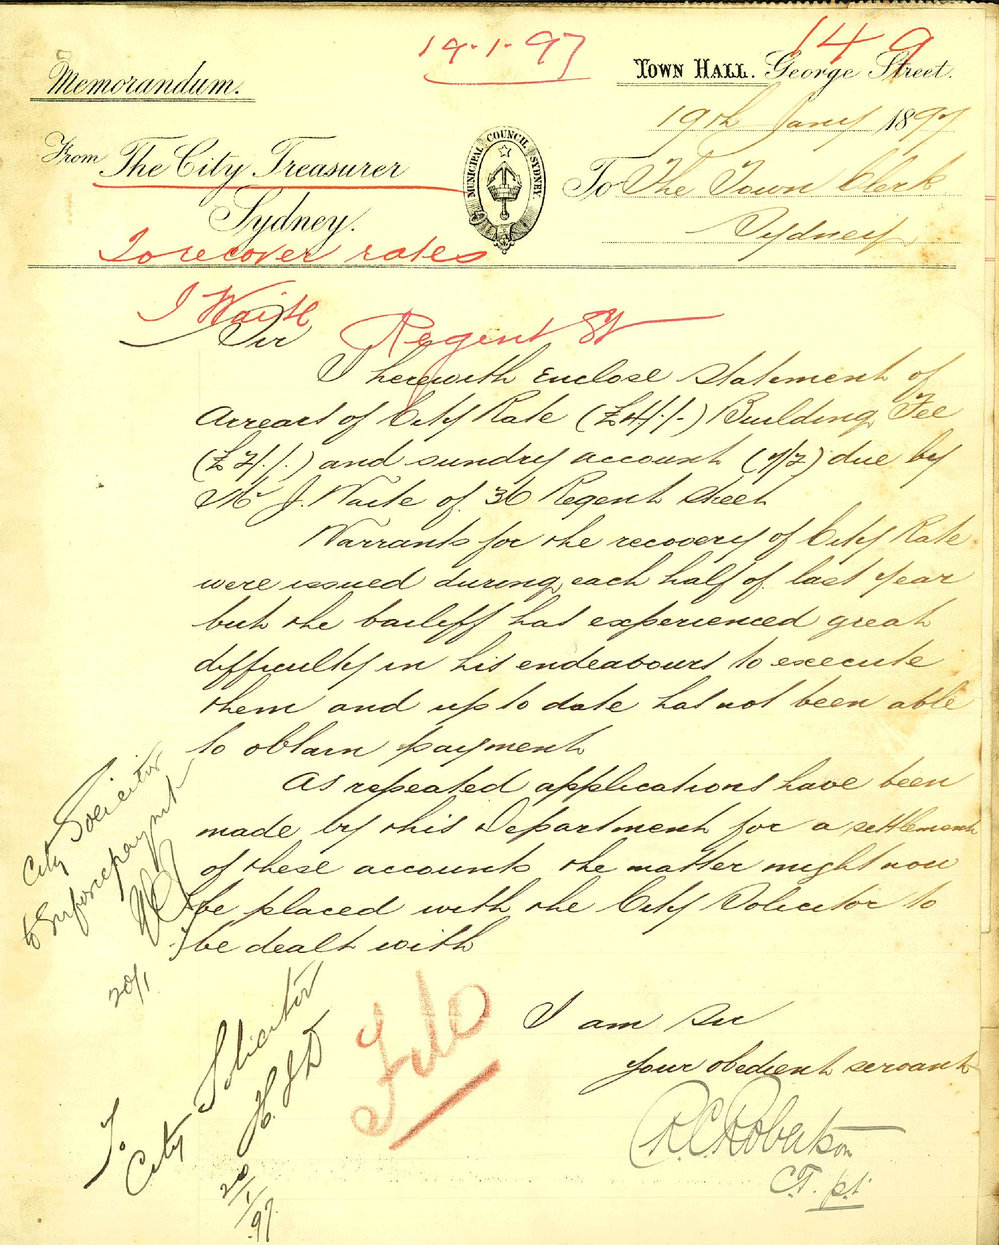 19.1.97
149
Memorandum.
TOWN HALL. George Street.
19th Jany 1897
From The City Treasurer
MUNICIPAL COUNCIL SYDNEY.
To The Town Clerk
Sydney.
Sydney
To recover rates
J Waite
Regent St
Sir
I herewith enclose statement of
arrears of City Rate (£4/./.) Building Fee
(£2/./.) and sundry account (7/2) due by
Mr J. Waite of 36 Regent Street
Warrants for the recovery of City Rate
were issued during each half of last year
but the bailiff has experienced great
difficulty in his endeavours to execute
them and up to date has not been able
to obtain payment
As repeated applications have been
made by this Department for a settlement
of these accounts the matter might now
be placed with the City Solicitor to
be dealt with
I am Sir
Your obedient servant
R.C. Robertson
C.T. p.t.
City Solicitor
to enforce paymt
20/1
File
To
City Solicitor
H.J.D
20/1/97